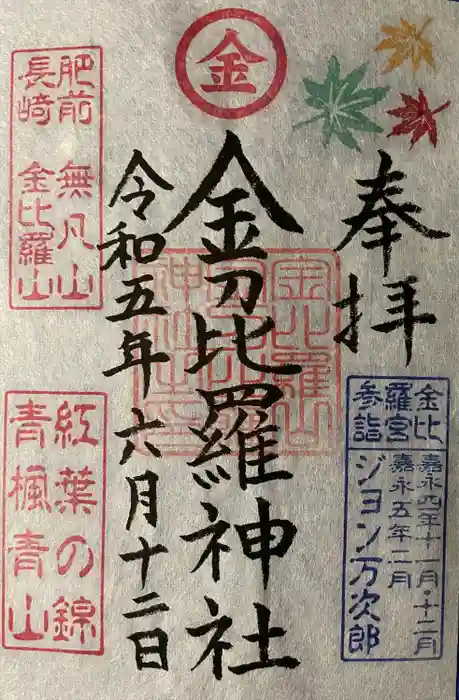 金
奉拝
金刀比羅神社
令和五年六月十二日
肥前 無凡山
長崎 金比羅山
紅葉の錦
青楓青山
金比
羅宮
参詣
嘉永四年十一月・十二月
嘉永五年二月
ジョン万次郎